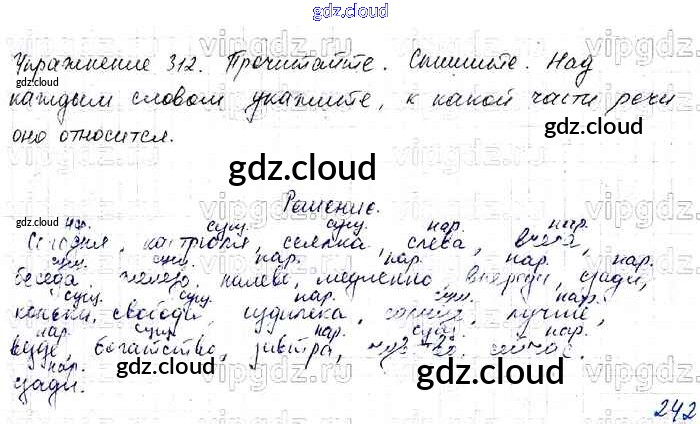 gdz.cloud
Упражнение 312. Прочитайте. Спишите. Над
каждым словом укажите, к какой части речи
оно относится.
gdz.cloud
Решение.
нар. сущ. сущ. нар. нар.
Сегодня, картошка, семена, слева, вчера,
сущ. сущ. нар. нар. нар. нар.
беседа, железо, налево, медленно, впереди, сзади,
сущ. сущ. нар. сущ. нар.
коньки, свобода, издалека, солнце, лучше,
нар. сущ. нар. сущ. нар.
везде, богатство, завтра, сейчас.
нар.
сзади.
gdz.cloud
gdz.cloud
242